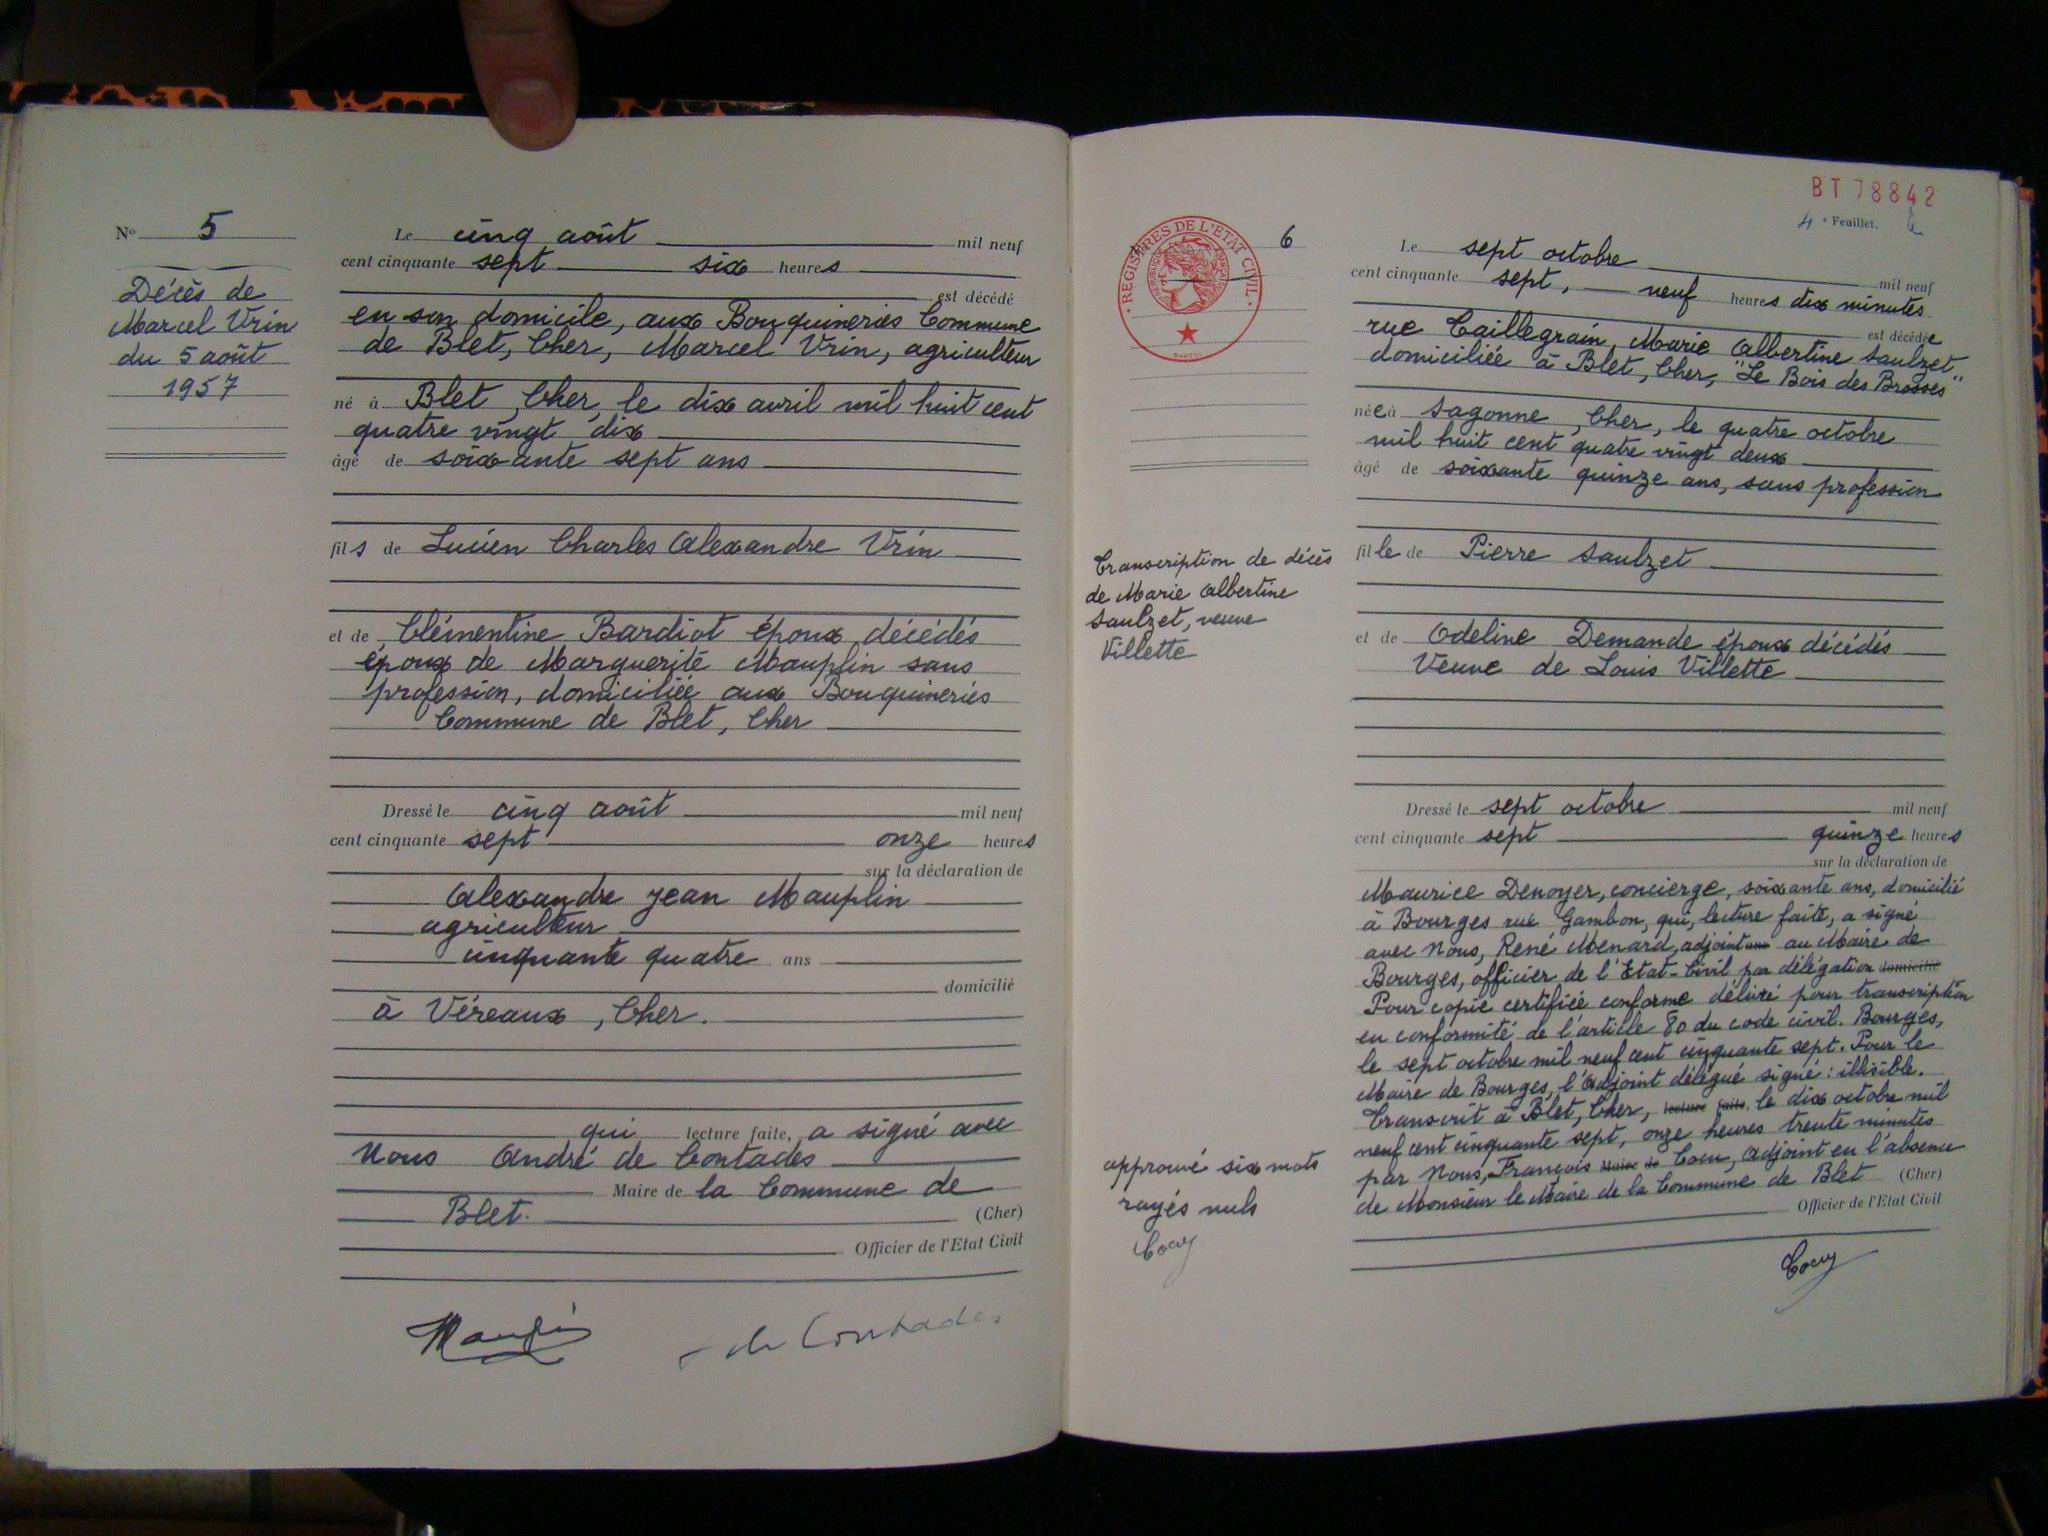 Nº 5
Décès de
Marcel Vrin
du 5 août
1957
Le cinq août mil neuf
cent cinquante sept six heures
est décédé
en son domicile, aux Bouquineries Commune
de Blet, Cher, Marcel Vrin, agriculteur
né à Blet, Cher, le dix avril mil huit cent
quatre vingt dix
âgé de soixante sept ans
fils de Lucien Charles Alexandre Vrin
et de Clémentine Bardiot époux décédés
époux de Marguerite Mauplin sans
profession, domiciliée aux Bouquineries
Commune de Blet, Cher
Dressé le cinq août mil neuf
cent cinquante sept onze heures
sur la déclaration de
Alexandre Jean Mauplin
agriculteur
cinquante quatre ans
domicilié
à Véreaux, Cher.
qui lecture faite, a signé avec
Nous André de Contades
Maire de la Commune de
Blet. (Cher)
Officier de l'Etat Civil
de Contades
BT 78842
4 e Feuillet.
REGISTRES DE L'ETAT CIVIL
6
Le sept octobre mil neuf
cent cinquante sept, neuf heures dix minutes
est décédée
rue Taillegrain, Marie Albertine Saulzet
domiciliée à Blet, Cher, "Le Bois des Brosses"
née à Sagonne, Cher, le quatre octobre
mil huit cent quatre vingt deux
âgé de soixante quinze ans, sans profession
Transcription de décès
de Marie Albertine
Saulzet, veuve
Villette
fille de Pierre Saulzet
et de Odeline Demande époux décédés
Veuve de Louis Villette
Dressé le sept octobre mil neuf
cent cinquante sept quinze heures
sur la déclaration de
Maurice Denoyer, concierge, soixante ans, domicilié
à Bourges rue Gambon, qui, lecture faite, a signé
avec Nous, René Menard, adjoint au Maire de
Bourges, officier de l'Etat-Civil par délégation domicilié
Pour copie certifiée conforme délivré pour transcription
en conformité de l'article 80 du code civil. Bourges,
le sept octobre mil neuf cent cinquante sept. Pour le
Maire de Bourges, l'Adjoint délégué signé : illisible.
Transcrit à Blet, Cher, lecture faite, le dix octobre mil
neuf cent cinquante sept, onze heures trente minutes
par Nous, François Maire de Couy, Adjoint en l'absence
de Monsieur le Maire de la Commune de Blet (Cher)
Officier de l'Etat Civil
approuvé six mots
rayés nuls
Couy
Couy